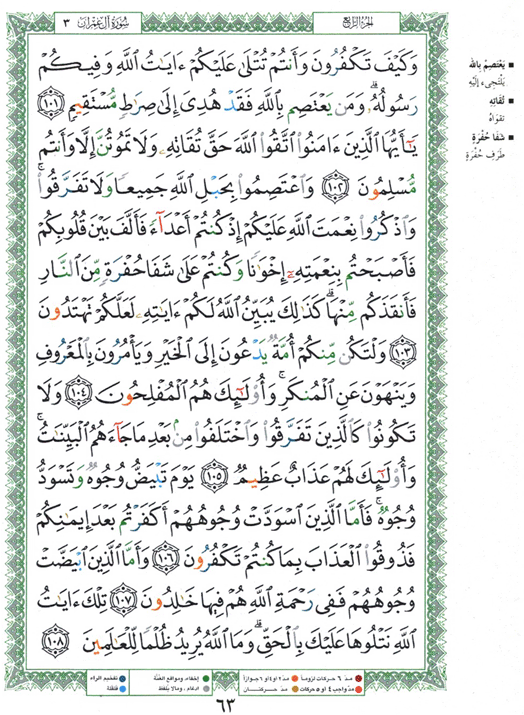 سُورَةُ آلِ عِمْرَان ٣
الجزء الرابع
وَكَيْفَ تَكْفُرُونَ وَأَنتُمْ تُتْلَىٰ عَلَيْكُمْ ءَايَٰتُ ٱللَّهِ وَفِيكُمْ
رَسُولُهُۥ ۗ وَمَن يَعْتَصِم بِٱللَّهِ فَقَدْ هُدِىَ إِلَىٰ صِرَٰطٍ مُّسْتَقِيمٍ ١٠١
يَٰٓأَيُّهَا ٱلَّذِينَ ءَامَنُوا۟ ٱتَّقُوا۟ ٱللَّهَ حَقَّ تُقَاتِهِۦ وَلَا تَمُوتُنَّ إِلَّا وَأَنتُم
مُّسْلِمُونَ ١٠٢ وَٱعْتَصِمُوا۟ بِحَبْلِ ٱللَّهِ جَمِيعًا وَلَا تَفَرَّقُوا۟ ۚ
وَٱذْكُرُوا۟ نِعْمَتَ ٱللَّهِ عَلَيْكُمْ إِذْ كُنتُمْ أَعْدَآءً فَأَلَّفَ بَيْنَ قُلُوبِكُمْ
فَأَصْبَحْتُم بِنِعْمَتِهِۦٓ إِخْوَٰنًا وَكُنتُمْ عَلَىٰ شَفَا حُفْرَةٍ مِّنَ ٱلنَّارِ
فَأَنقَذَكُم مِّنْهَا ۗ كَذَٰلِكَ يُبَيِّنُ ٱللَّهُ لَكُمْ ءَايَٰتِهِۦ لَعَلَّكُمْ تَهْتَدُونَ
١٠٣ وَلْتَكُن مِّنكُمْ أُمَّةٌ يَدْعُونَ إِلَى ٱلْخَيْرِ وَيَأْمُرُونَ بِٱلْمَعْرُوفِ
وَيَنْهَوْنَ عَنِ ٱلْمُنكَرِ ۚ وَأُو۟لَٰٓئِكَ هُمُ ٱلْمُفْلِحُونَ ١٠٤ وَلَا
تَكُونُوا۟ كَٱلَّذِينَ تَفَرَّقُوا۟ وَٱخْتَلَفُوا۟ مِنۢ بَعْدِ مَا جَآءَهُمُ ٱلْبَيِّنَٰتُ ۚ
وَأُو۟لَٰٓئِكَ لَهُمْ عَذَابٌ عَظِيمٌ ١٠٥ يَوْمَ تَبْيَضُّ وُجُوهٌ وَتَسْوَدُّ
وُجُوهٌ ۚ فَأَمَّا ٱلَّذِينَ ٱسْوَدَّتْ وُجُوهُهُمْ أَكَفَرْتُم بَعْدَ إِيمَٰنِكُمْ
فَذُوقُوا۟ ٱلْعَذَابَ بِمَا كُنتُمْ تَكْفُرُونَ ١٠٦ وَأَمَّا ٱلَّذِينَ ٱبْيَضَّتْ
وُجُوهُهُمْ فَفِى رَحْمَةِ ٱللَّهِ هُمْ فِيهَا خَٰلِدُونَ ١٠٧ تِلْكَ ءَايَٰتُ
ٱللَّهِ نَتْلُوهَا عَلَيْكَ بِٱلْحَقِّ ۗ وَمَا ٱللَّهُ يُرِيدُ ظُلْمًا لِّلْعَٰلَمِينَ ١٠٨
■ يَعْتَصِم بالله
يَلْتَجِىءْ إلَيْهِ
■ تُقَاتِهِ
تقواهُ
■ شَفَا حُفْرَةٍ
طَرَفِ حُفْرَةٍ
مدّ ٦ حركات لزوماً
مدّ ٢ أو ٤ أو ٦ جوازاً
إخفاء، ومواقع الغُنَّة
تفخيم الراء
مدّ واجب ٤ أو ٥ حركات
مدّ حركتان
إدغام، ومالا يلفظ
قلقلة
٦٣